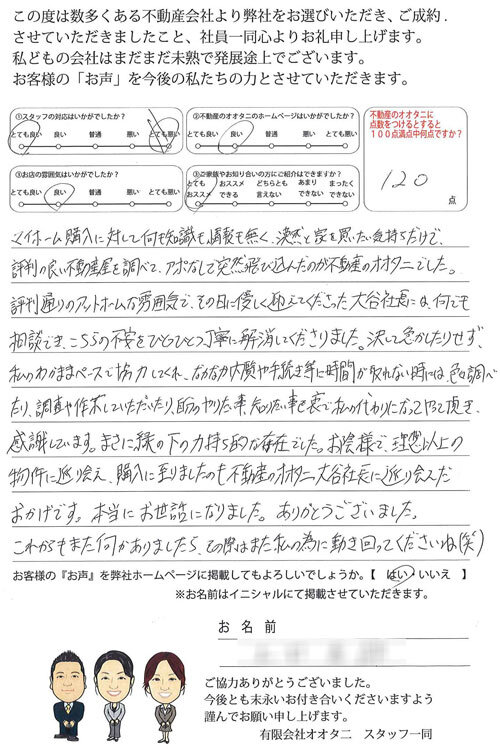 この度は数多くある不動産会社より弊社をお選びいただき、ご成約.
させていただきましたこと、社員一同心よりお礼申し上げます。
私どもの会社はまだまだ未熟で発展途上でございます。
お客様の「お声」を今後の私たちの力とさせていただきます。
①スタッフの対応はいかがでしたか?
とても良い 良い 普通 悪い とても悪い
②不動産のオオタニのホームページはいかがでしたか?
とても良い 良い 普通 悪い とても悪い
③お店の雰囲気はいかがでしたか?
とても良い 良い 普通 悪い とても悪い
③ご家族やお知り合いの方にご紹介はできますか?
とても オススメ どちらとも あまり まったく
オススメ できる 言えない できない できない
不動産のオオタニに
点数をつけるとすると
100点満点中何点ですか?
120
点
マイホーム購入に対して何も知識も情報も無く、漠然と家を買いたい気持ちだけで、
評判の良い不動産屋を調べて、アポなしで突然飛び込んだのが不動産のオオタニでした。
評判通りのアットホームな雰囲気で、その日に優しく迎えてくださった大谷社長には、何でも
相談でき、こちらの不安をひとつひとつ丁寧に解消してくださりました。決して急かしたりせず、
私のわがままペースで協力してくれ、なかなか内覧や手続き等に時間が取れない時には、色々調べ
たり、調査や作業していただいたり、自分のやりたい事、知りたい事を裏で私の代わりになってやって頂き、
感謝しています。まさに縁の下の力持ち的な存在でした。お陰様で、理想以上の
物件に巡り会え、購入に至りましたのも不動産のオオタニ、大谷社長に巡り会えた
おかげです。本当にお世話になりました。ありがとうございました。
これからもまた何かありましたら、その際はまた私の為に動き回ってくださいね(笑)
お客様の『お声』を弊社ホームページに掲載してもよろしいでしょうか。【 はい・いいえ 】
※お名前はイニシャルにて掲載させていただきます。
お 名 前
ご協力ありがとうございました。
今後とも末永いお付き合いくださいますよう
謹んでお願い申し上げます。
有限会社オオタニ スタッフ一同